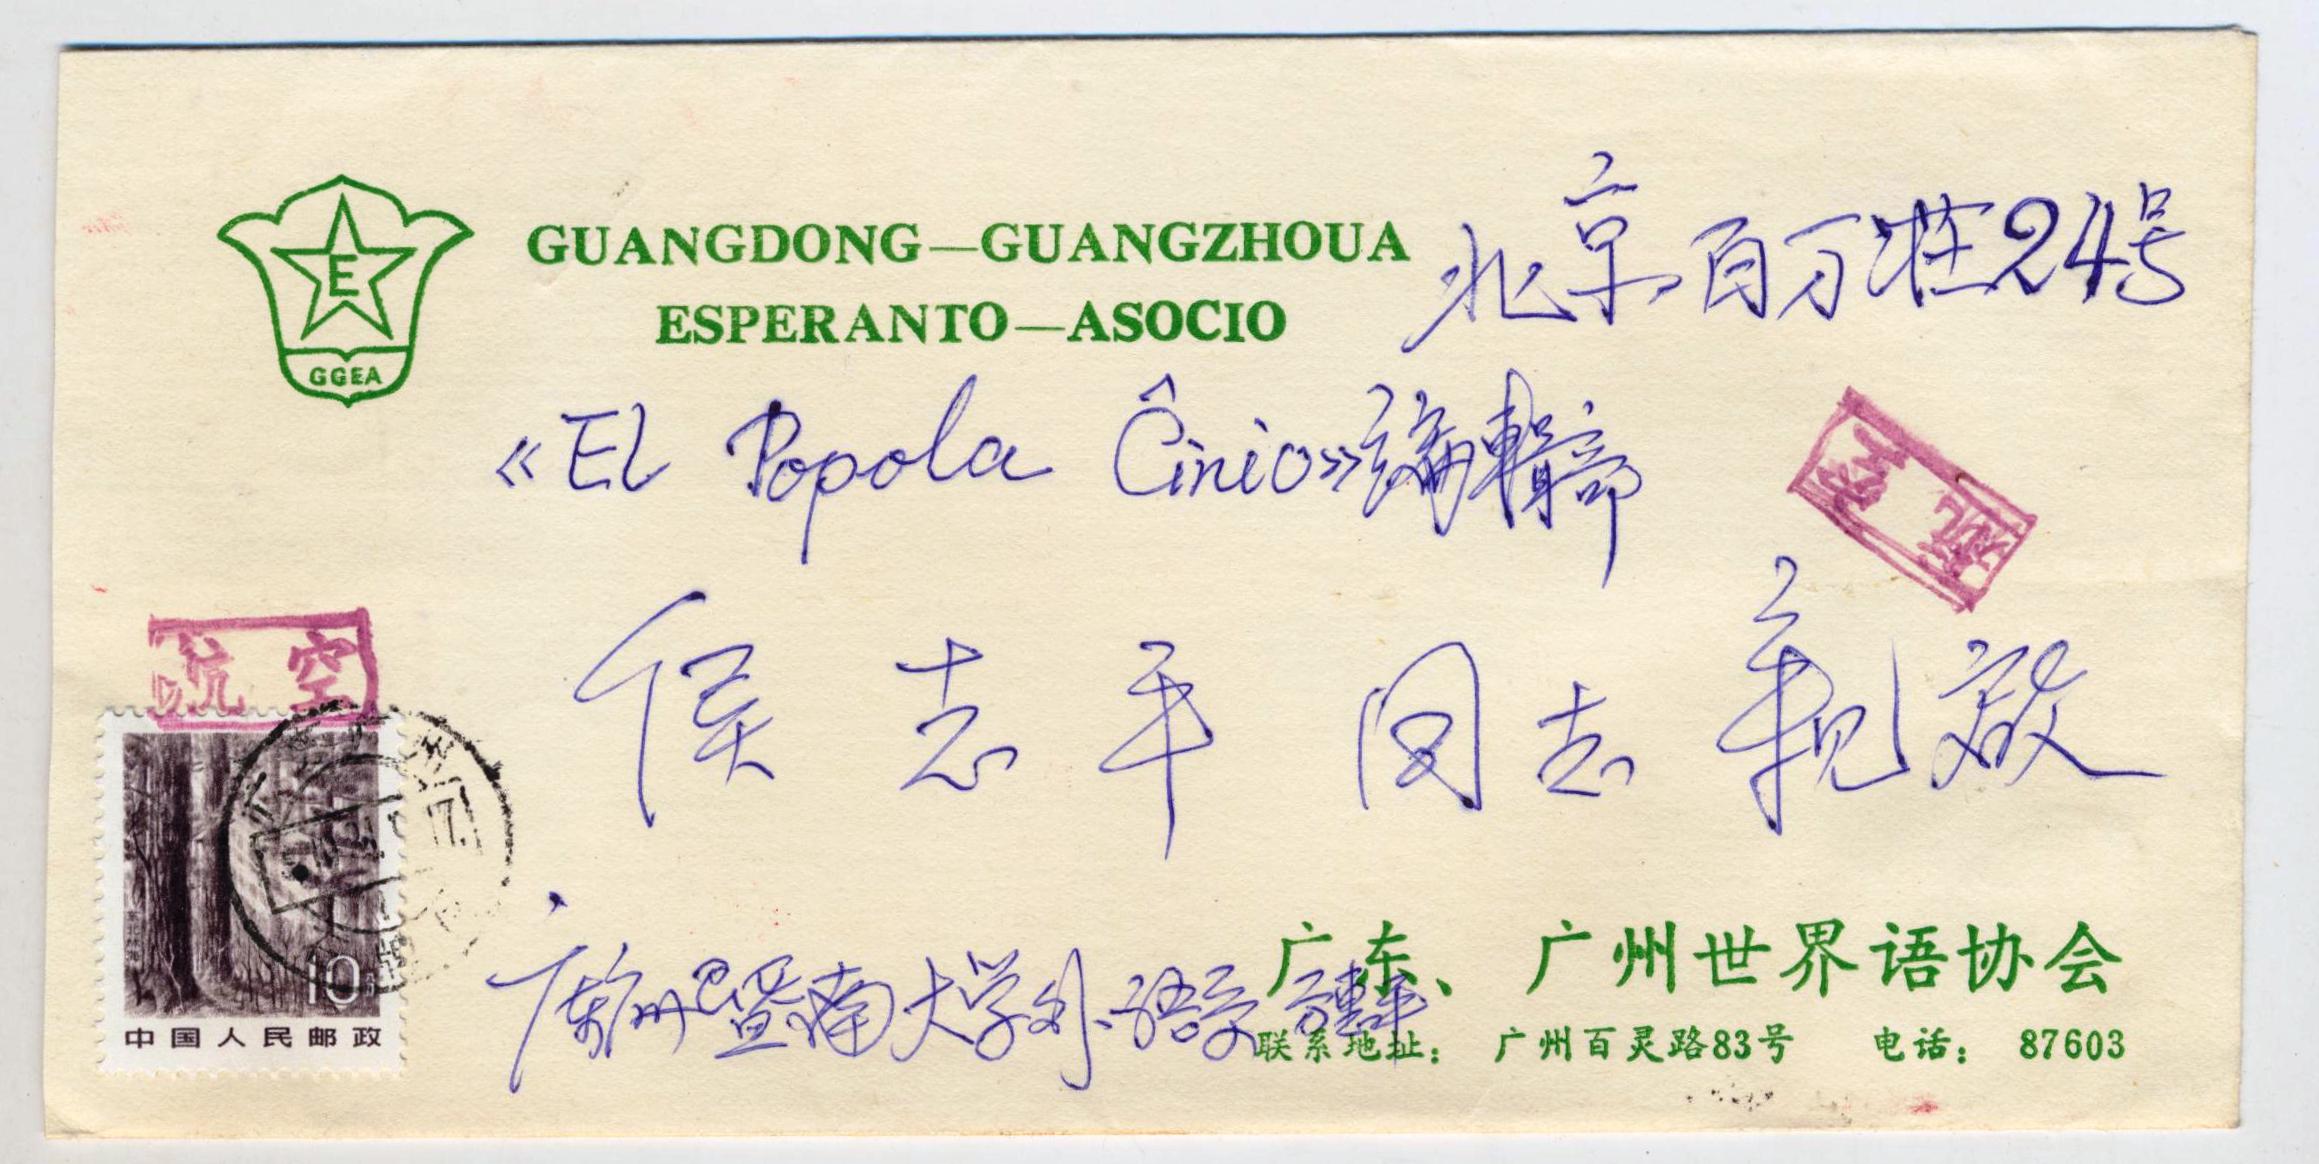 GUANGDONG—GUANGZHOUA
ESPERANTO—ASOCIO
E
GGEA
北京百万庄24号
《El Popola Ĉinio》编辑部
航空
侯志平 同志 亲启
航空
10
中国人民邮政
广州暨南大学外语系
广东、广州世界语协会
联系地址: 广州百灵路83号 电话: 87603